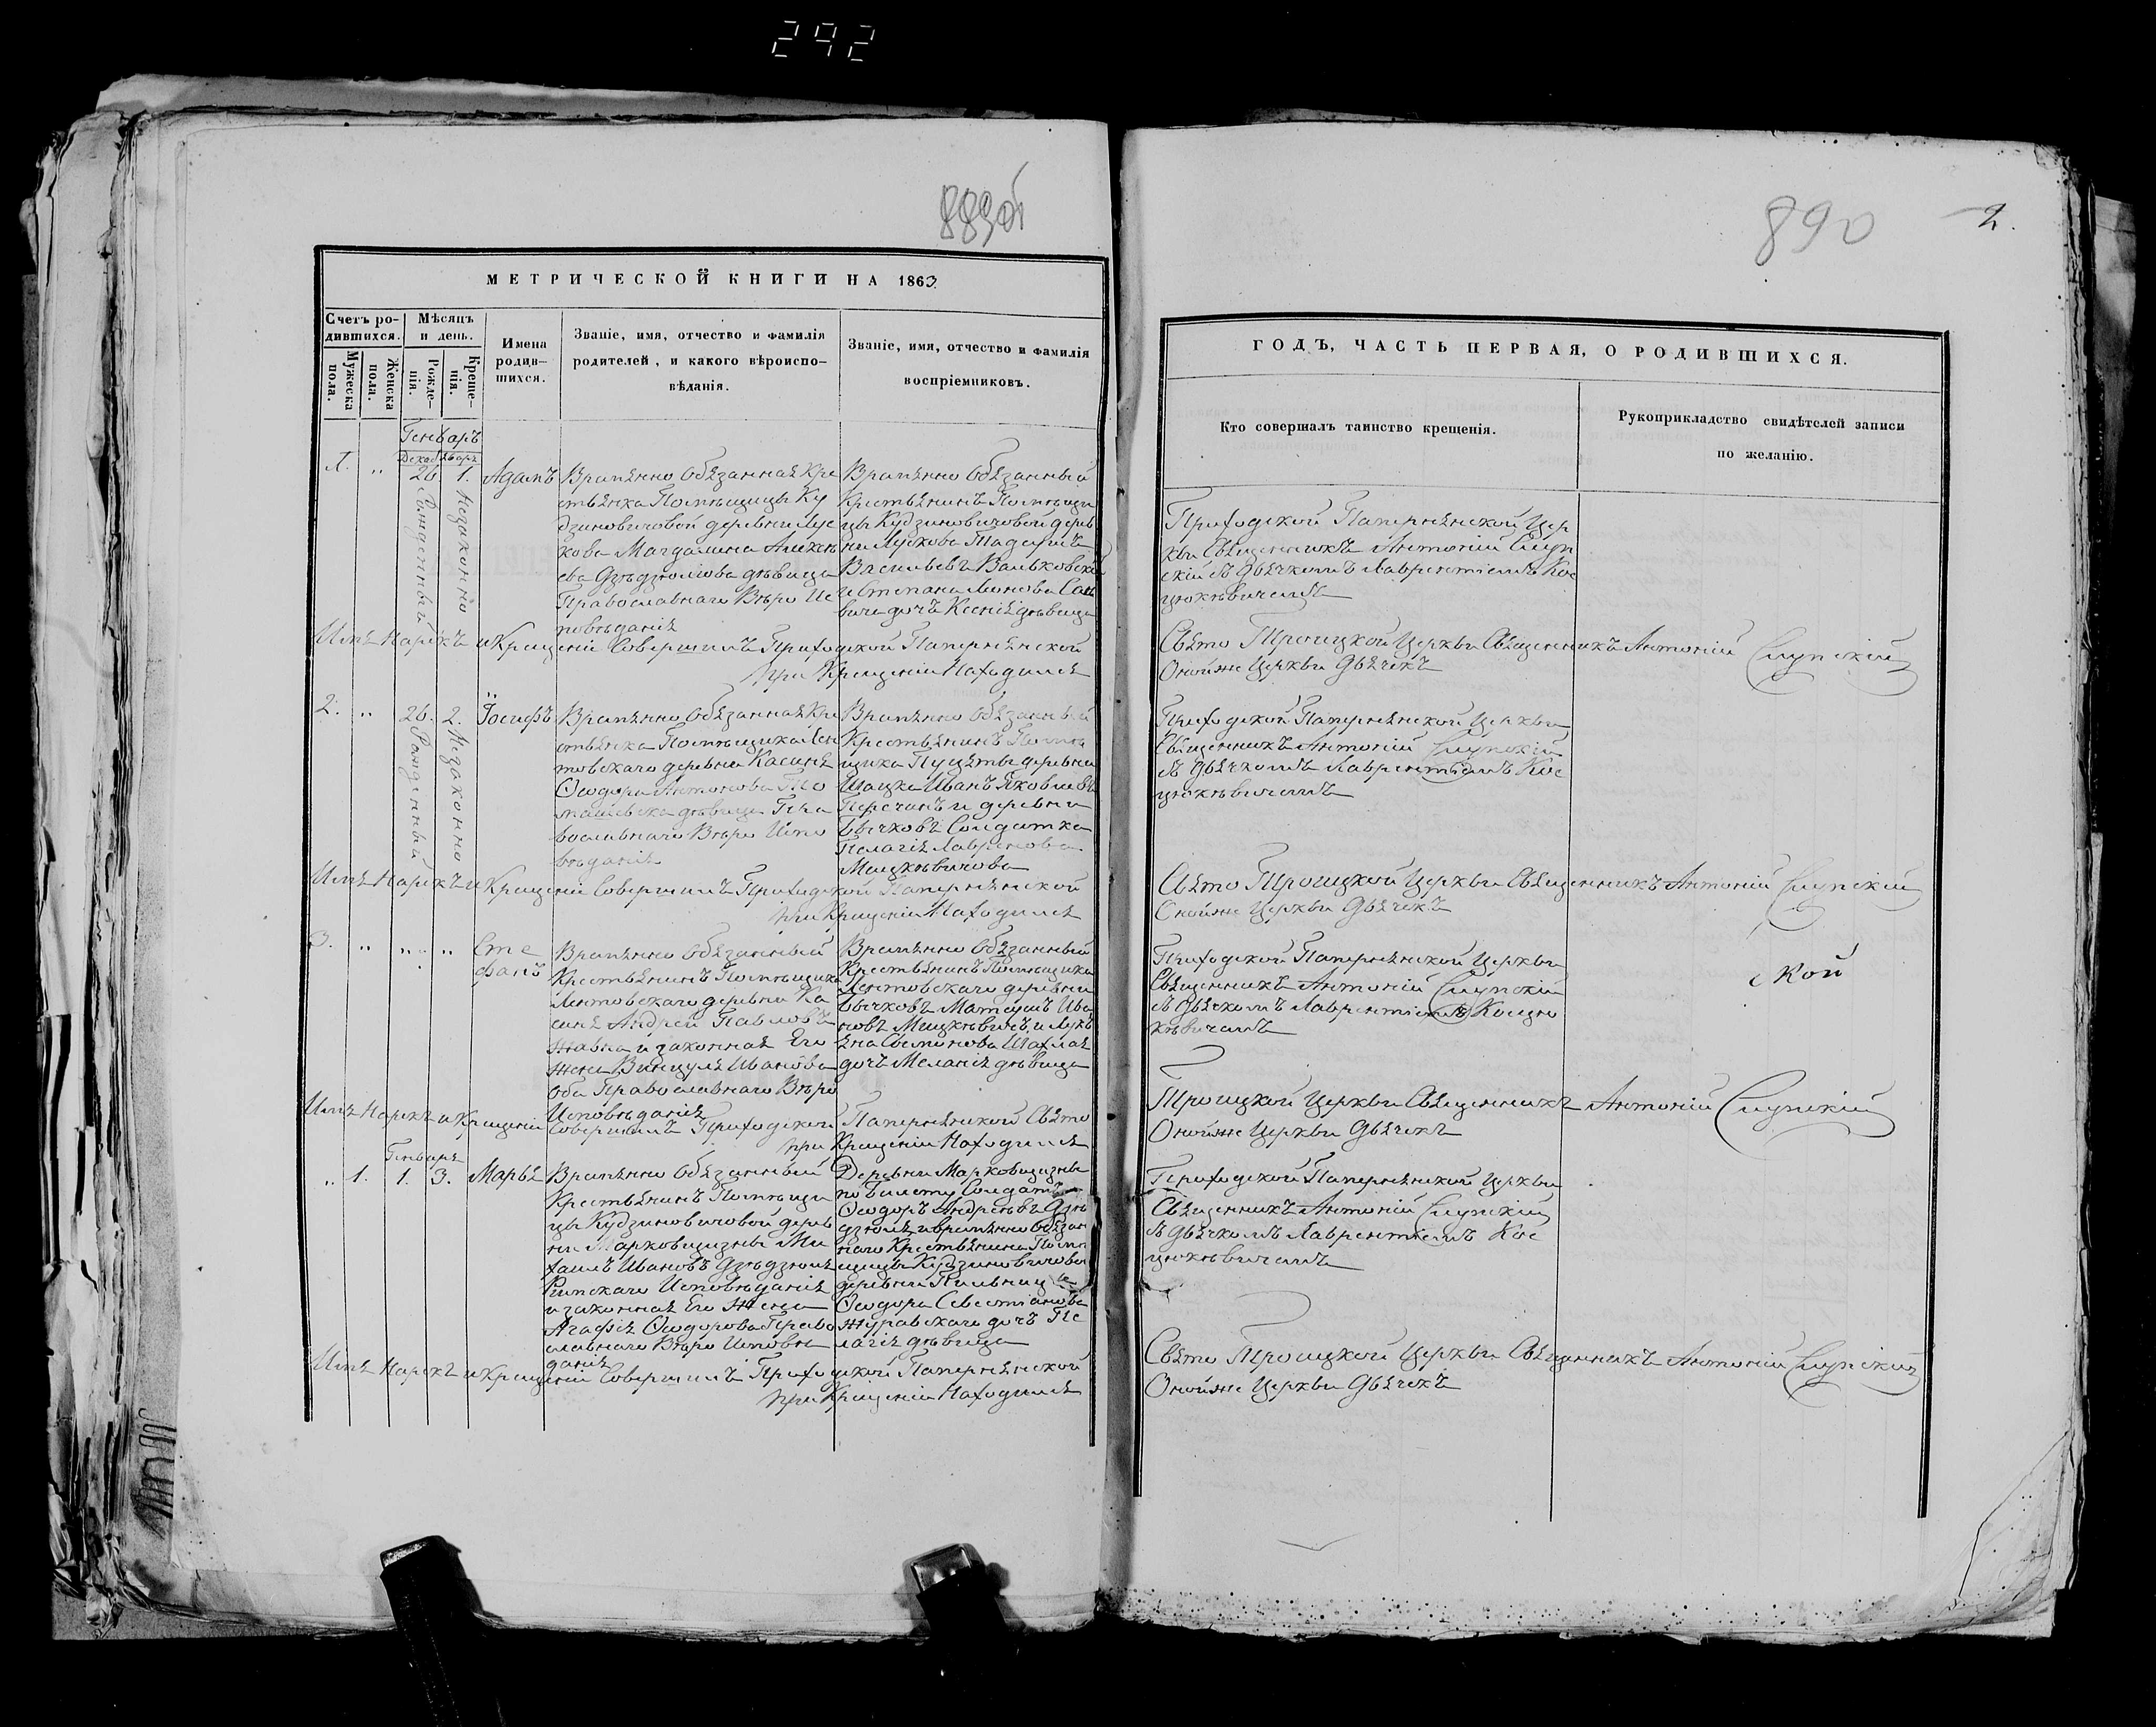 292
889об
МЕТРИЧЕСКОЙ КНИГИ НА 1863.
Счетъ ро-
дившихся.
Мужеска
пола.
Женска
пола.
Мѣсяцъ
и день.
Рожде-
нія.
Креще-
нія.
Имена
родив-
шихся.
Званіе, имя, отчество и фамилія
родителей, и какого вѣроиспо-
вѣданія.
Званіе, имя, отчество и фамилія
воспріемниковъ.
Генварь
Декабь Генварь
1. „ 26 1. Адамъ
Рожденный
Незаконно
Времянно Обязанная Кре
стьянка Помѣщицы Ку
дзиновичовой деревни Лус
кова Магдалина Алексѣ
ева Дзѣдзюлёва дѣвица
Православнаго Вѣро Ис
повѣданія
Времянно Обязанный
Крестьянинъ Помѣщи
цы Кудзиновичовой дерев
ни Лускова Тадеушъ
Васильевъ Вальковскій
и Степана Леонова
вича дочь Ксенія дѣвица
Имя Нарекъ и Крещеніе Совершилъ Приходской Паперня̀нской
при Крещеніи Находился
2. „ 26. 2. Іосифъ
Рожденный
Незаконно
Времянно Обязанная Кре
стьянка Помѣщика Лен
товскаго деревни Касиня
Ѳеодора Антонова
дѣвица Пра
вославнаго Вѣро Испо
вѣданія
Времянно Обязанный
Крестьянинъ Помѣ
щика Пущаты деревни
Шацка Иванъ Яковлевъ
и деревни
Бычковъ Солдатка
Пелагія Лавренова
Мицкѣвичова
Имя Нарекъ и Крещеніе Совершилъ Приходской Папернянской
при Крещеніи Находился
3. „ „ „ Сте
фанъ
Времянно Обязанный
Крестьянинъ Помѣщика
Лентовскаго деревни Ка
синя Андрей Павловъ
и законная Его
жена Винцуля Иванова
Оба Православнаго Вѣро
Исповѣданія
Времянно Обязанный
Крестьянинъ Помѣщика
Лентовскаго деревни
Бычковъ Матеушъ Ива
новъ Мицкѣвичъ, и Лукь
яна
дочь Меланія дѣвица
Имя Нарекъ и Крещеніе Совершилъ Приходской Папернянской Свято
при Крещеніи Находился
Генварь
„ 1. 1. 3. Марья
Времянно Обязанный
Крестьянинъ Помѣщи
цы Кудзиновичовой дерев
ни Марковщизны Ми
хаилъ Ивановъ Дзѣдзюля
Римскаго Исповѣданія
и законная Его Жена
Агафія Ѳеодорова Право
славнаго Вѣро Исповѣ
данія
Деревни Марковщизны
по Билету Солдатъ
Ѳеодоръ Андреевъ Дзѣ
дзюля и времянно Обязан
наго Крестьянина Помѣ
щицы Кудзиновичовой
деревни
Ѳеодора Севестіанова
Журавскаго дочь Пе
лагія дѣвица
Имя Нарекъ и Крещеніе Совершилъ Приходской Папернянской
при Крещеніи Находился
890
2.
ГОДЪ, ЧАСТЬ ПЕРВАЯ, О РОДИВШИХСЯ.
Кто совершалъ таинство крещенія.
Рукоприкладство свидѣтелей записи
по желанію.
Приходской Папернянской Цер
кви Священникъ Антоній Слуп
скій съ Дьячкомъ Лаврентіемъ Кос
цюкѣвичемъ
Свято Троицкой Церкви Священникъ Антоній Слупскій
Онойже Церкви Дьячекъ
Приходской Папернянской Церкви
Священникъ Антоній Слупскій
съ Дьячкомъ Лаврентіемъ Кос
цюкѣвичемъ
Свято Троицкой Церкви Священникъ Антоній Слупскій
Онойже Церкви Дьячекъ
Приходской Папернянской Церкви
Священникъ Антоній Слупскій
съ Дьячкомъ Лаврентіемъ Косцю
кѣвичемъ
ской
Троицкой Церкви Священникъ Антоній Слупскій
Онойже Церкви Дьячекъ
Приходской Папернянской Церкви
Священникъ Антоній Слупскій
съ Дьячкомъ Лаврентіемъ Кос
цюкѣвичемъ
Свято Троицкой Церкви Священникъ Антоній Слупскій
Онойже Церкви Дьячекъ